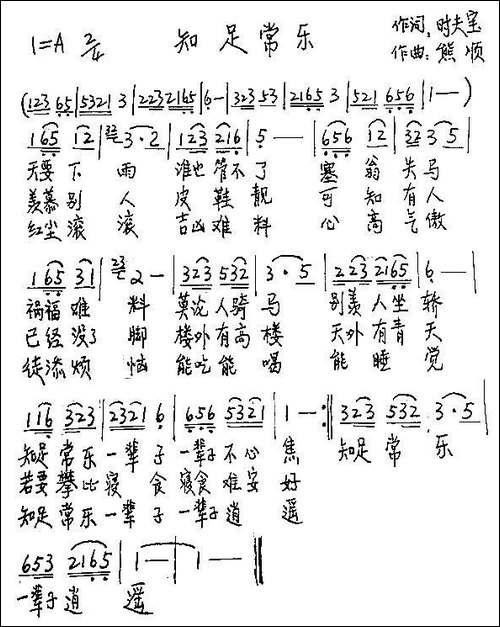 1=A 2/4 知足常乐 作词：时夫宝
作曲：熊顺
(123 65 | 5321 3 | 223 2165 | 6 - | 323 53 | 2165 3 | 521 656 | 1 - )
165 12 | 3·2 | 123 216 | 5 - | 656 12 | 32 3 5 |
天要下雨 谁也管不了 塞翁失马
羡慕别人 皮鞋靓 可知有人
红尘滚滚 吉凶难料 心高气傲
165 31 | 2 - | 323 532 | 3·5 | 223 2165 | 6 - |
祸福难料 莫说人骑马 别羡人坐轿
已经没了脚 楼外有高楼 天外有青天
徒添烦恼 能吃能喝 能睡觉
116 323 | 2321 6 | 656 5321 | 1 - :|| 323 532 3·5 |
知足常乐一辈子 一辈子不心焦 知足常乐
若要攀比寝食 寝食难安好
知足常乐一辈子 一辈子逍遥
653 2165 | 1 - | 1 - ||
一辈子逍遥